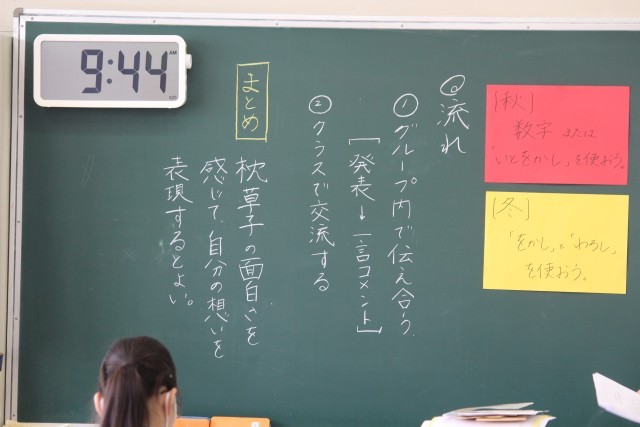 [秋]
数字 または
「いとをかし」を使おう。
[冬]
「をかし」と「わろし」
を使おう。
◎流れ
①グループ内で伝え合う.
[発表→一言コメント]
②クラスで交流する
まとめ
枕草子の面白さを
感じて、自分の想いを
表現するとよい。
9:44
AM